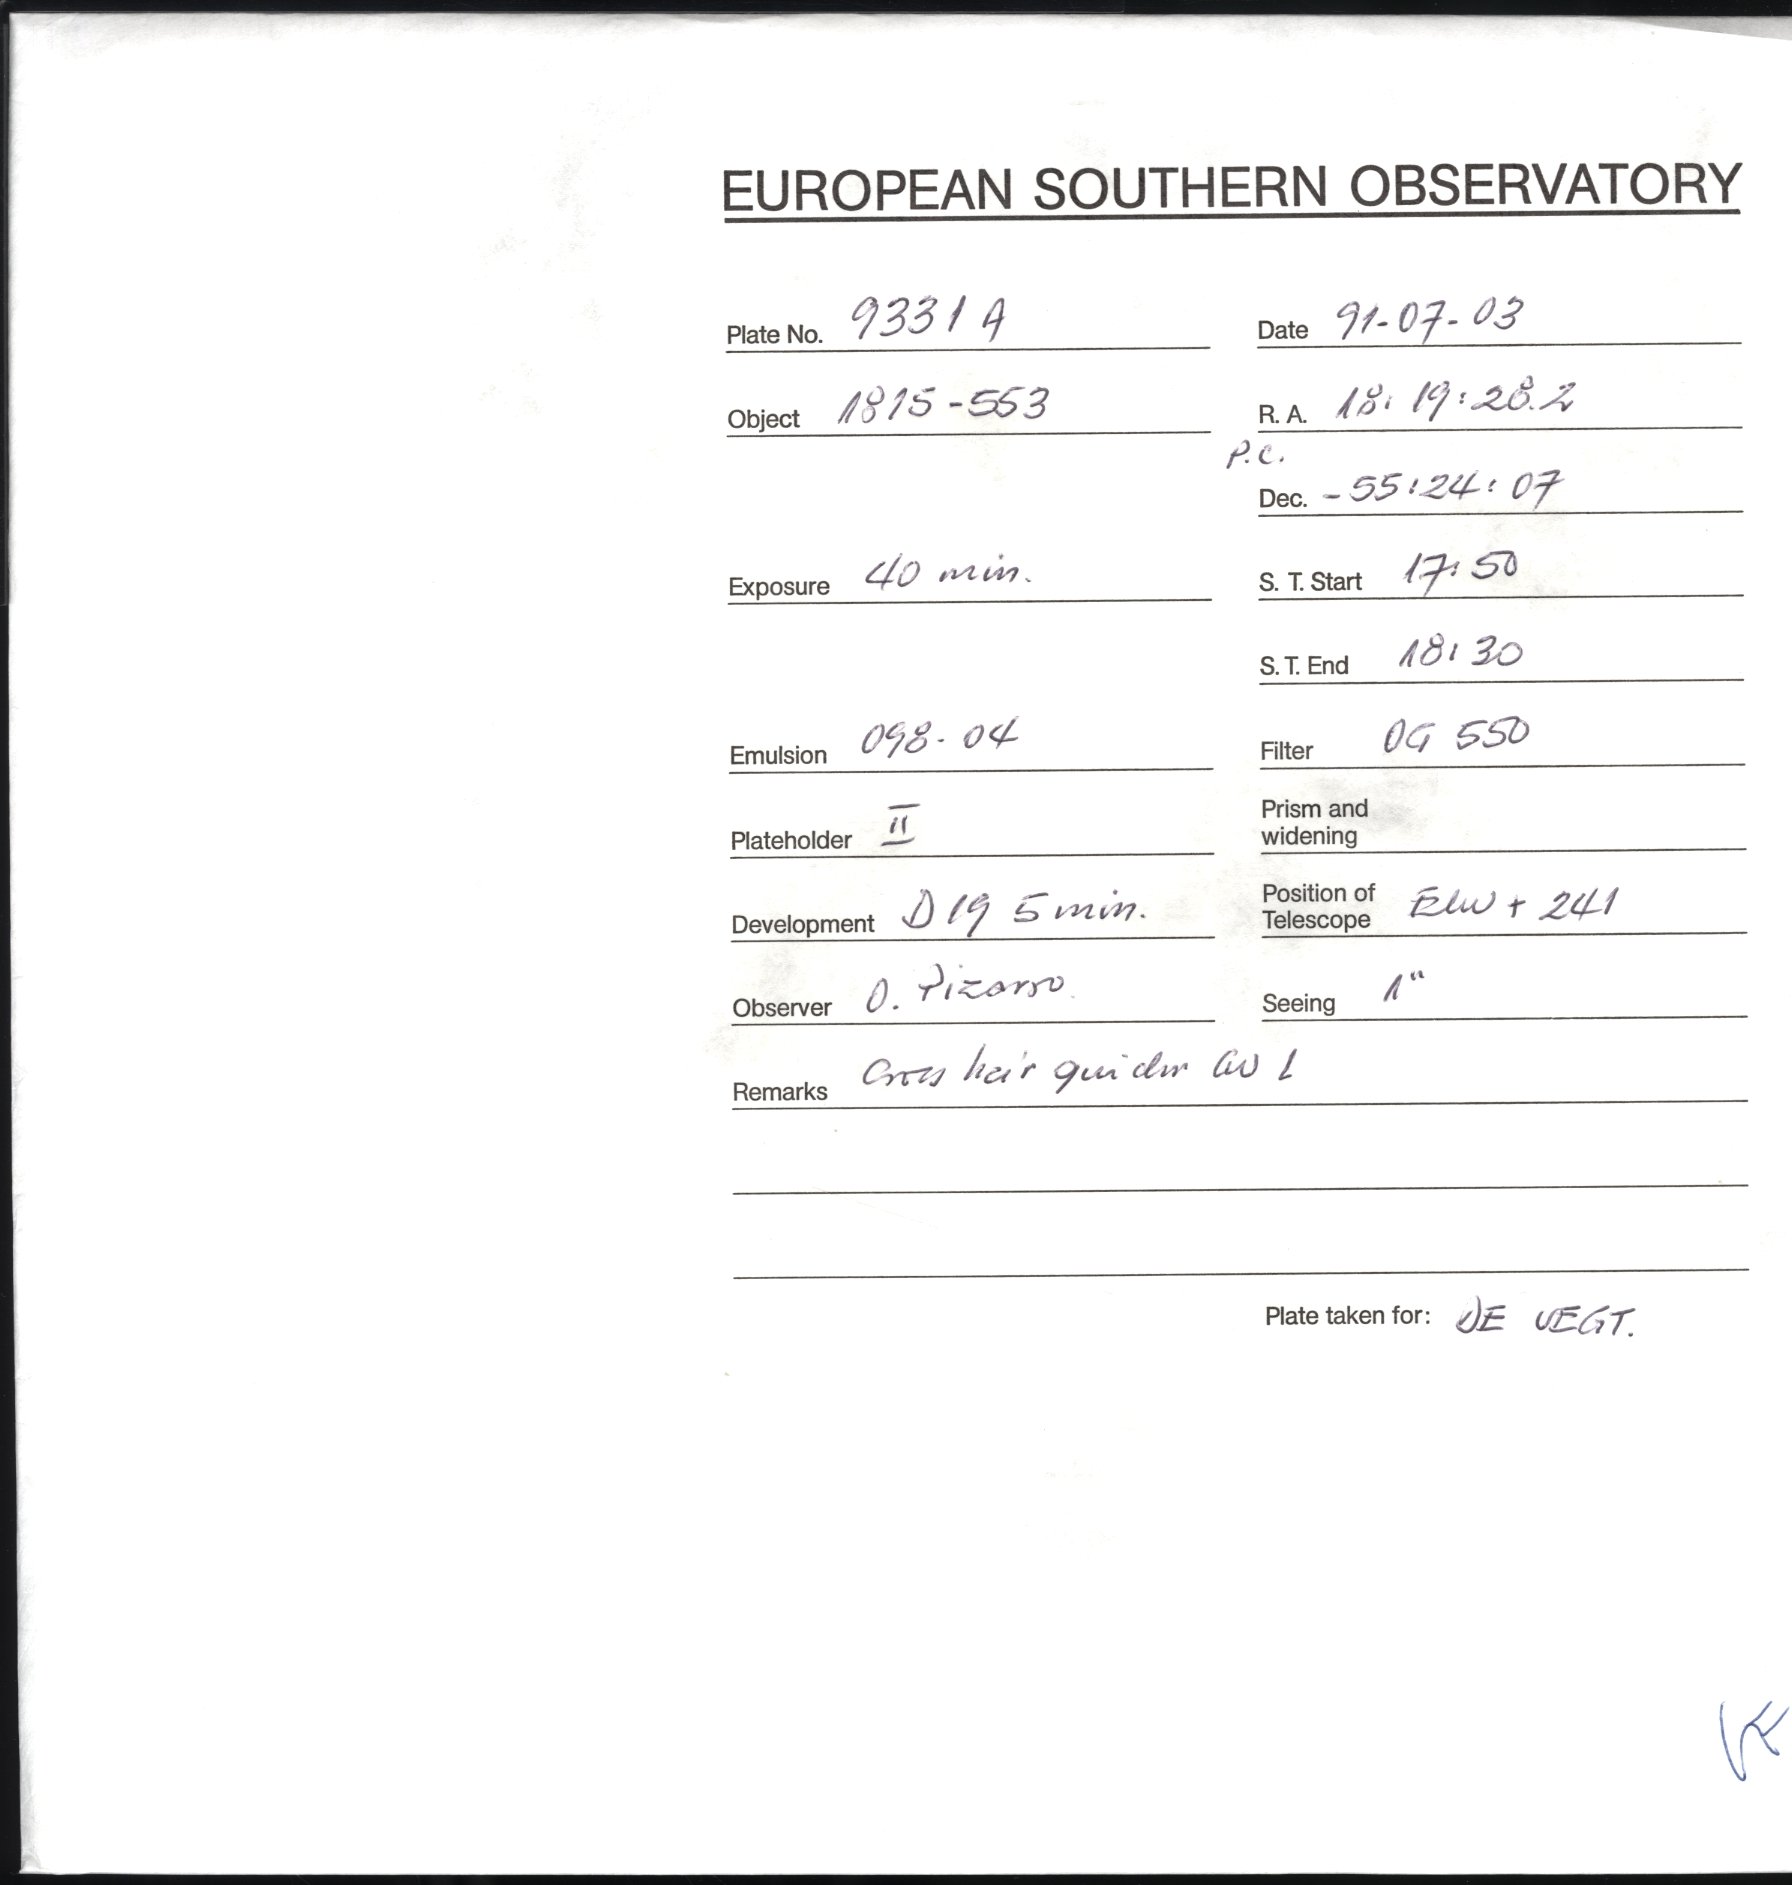 EUROPEAN SOUTHERN OBSERVATORY
Plate No. 9331 A
Date 91-07-03
Object 1815-553
R. A. 18:19:28.2
P.C.
Dec. -55:24:07
Exposure 40 min.
S. T. Start 17:50
S. T. End 18:30
Emulsion 098-04
Filter OG 550
Plateholder II
Prism and
widening
Development D19 5 min.
Position of
Telescope + 241
Observer O. Pizarro
Seeing 1"
Remarks Cross hair guider
Plate taken for: DE VEGT.